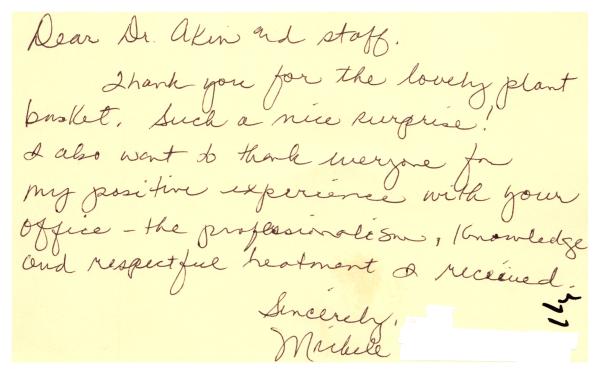 Dear Dr. Akin and staff.
Thank you for the lovely plant
basket. Such a nice surprise!
I also want to thank everyone for
my positive experience with your
office - the professionalism, knowledge
and respectful treatment I received.
Sincerely,
Michele